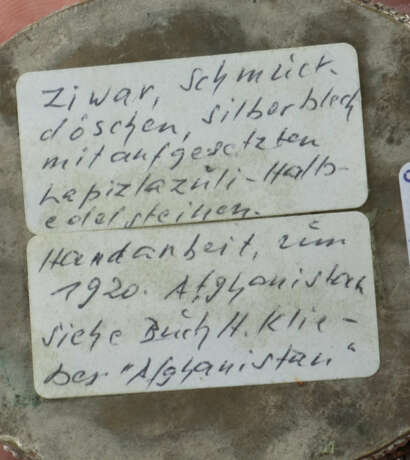 Ziwar, Schmuck-
döschen, Silberblech
mit aufgesetzten
Lapizlazüli-Halb-
edelsteinen.
Handarbeit, üm
1920. Afghanistan
siehe Büch H. Klie-
ber "Afghanistan"